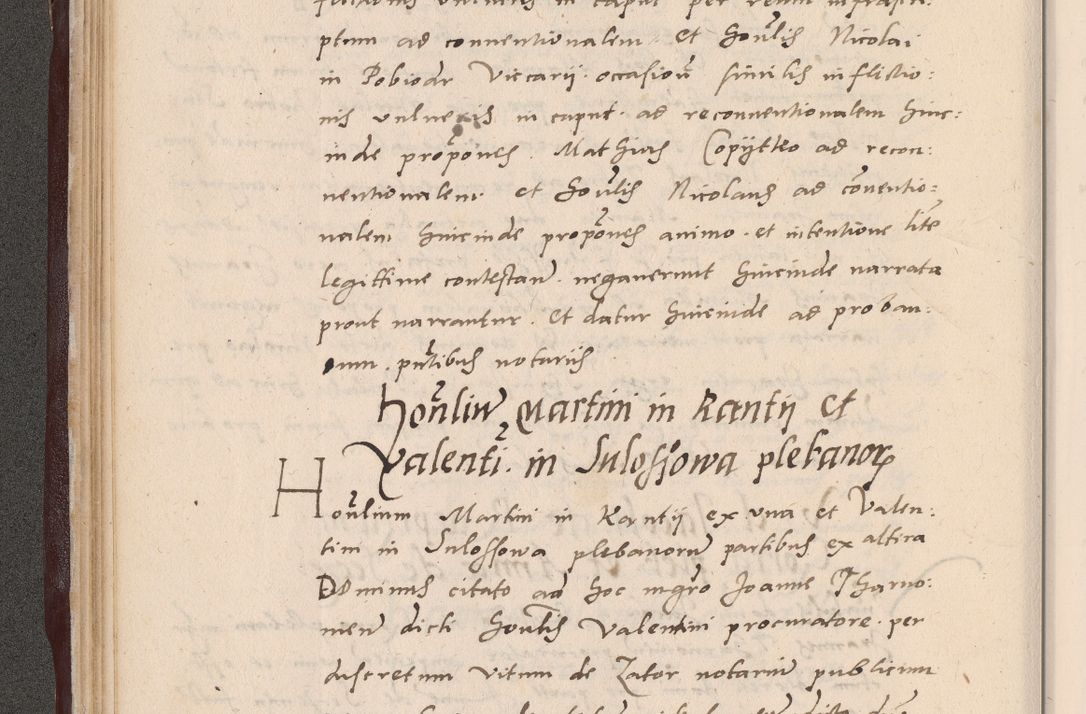 ptum ad conventionalem et honrlis Nicolai
in Pobiodr Viccarii occasion similis inflictio:
nis vulneris in caput ad reconventionalem hinc:
inde propones Mathias Copÿtko ad recon:
ventionalem et honrlis Nicolaus ad conventio:
nalem hincinde propones animo et intentione lite
legittime contestan negaverunt hincinde narrata
prout narrantur et datur hincinde ad proban:
dum pntibus notariis
honrliu Martini in Kantij et
Valenti in Sulossowa plebanor
Honrlium Martini in Kantij ex vna et Valen:
tini in Sulossowa plebanoru partibus ex altera
Dominus citato ad hoc mgro Joanne
men dicti honrlis Valentini procuratore per
discretum Vitum de Zator notarium publicum